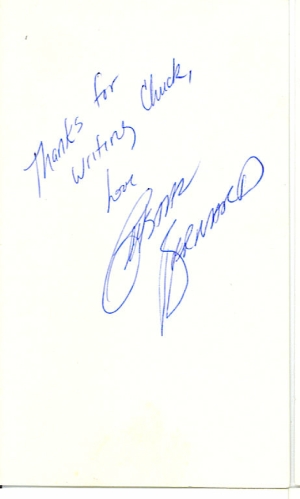 Thanks for
writing Chuck,
love